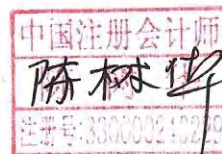 中国注册会计师
陈树华
注册号:330000210289